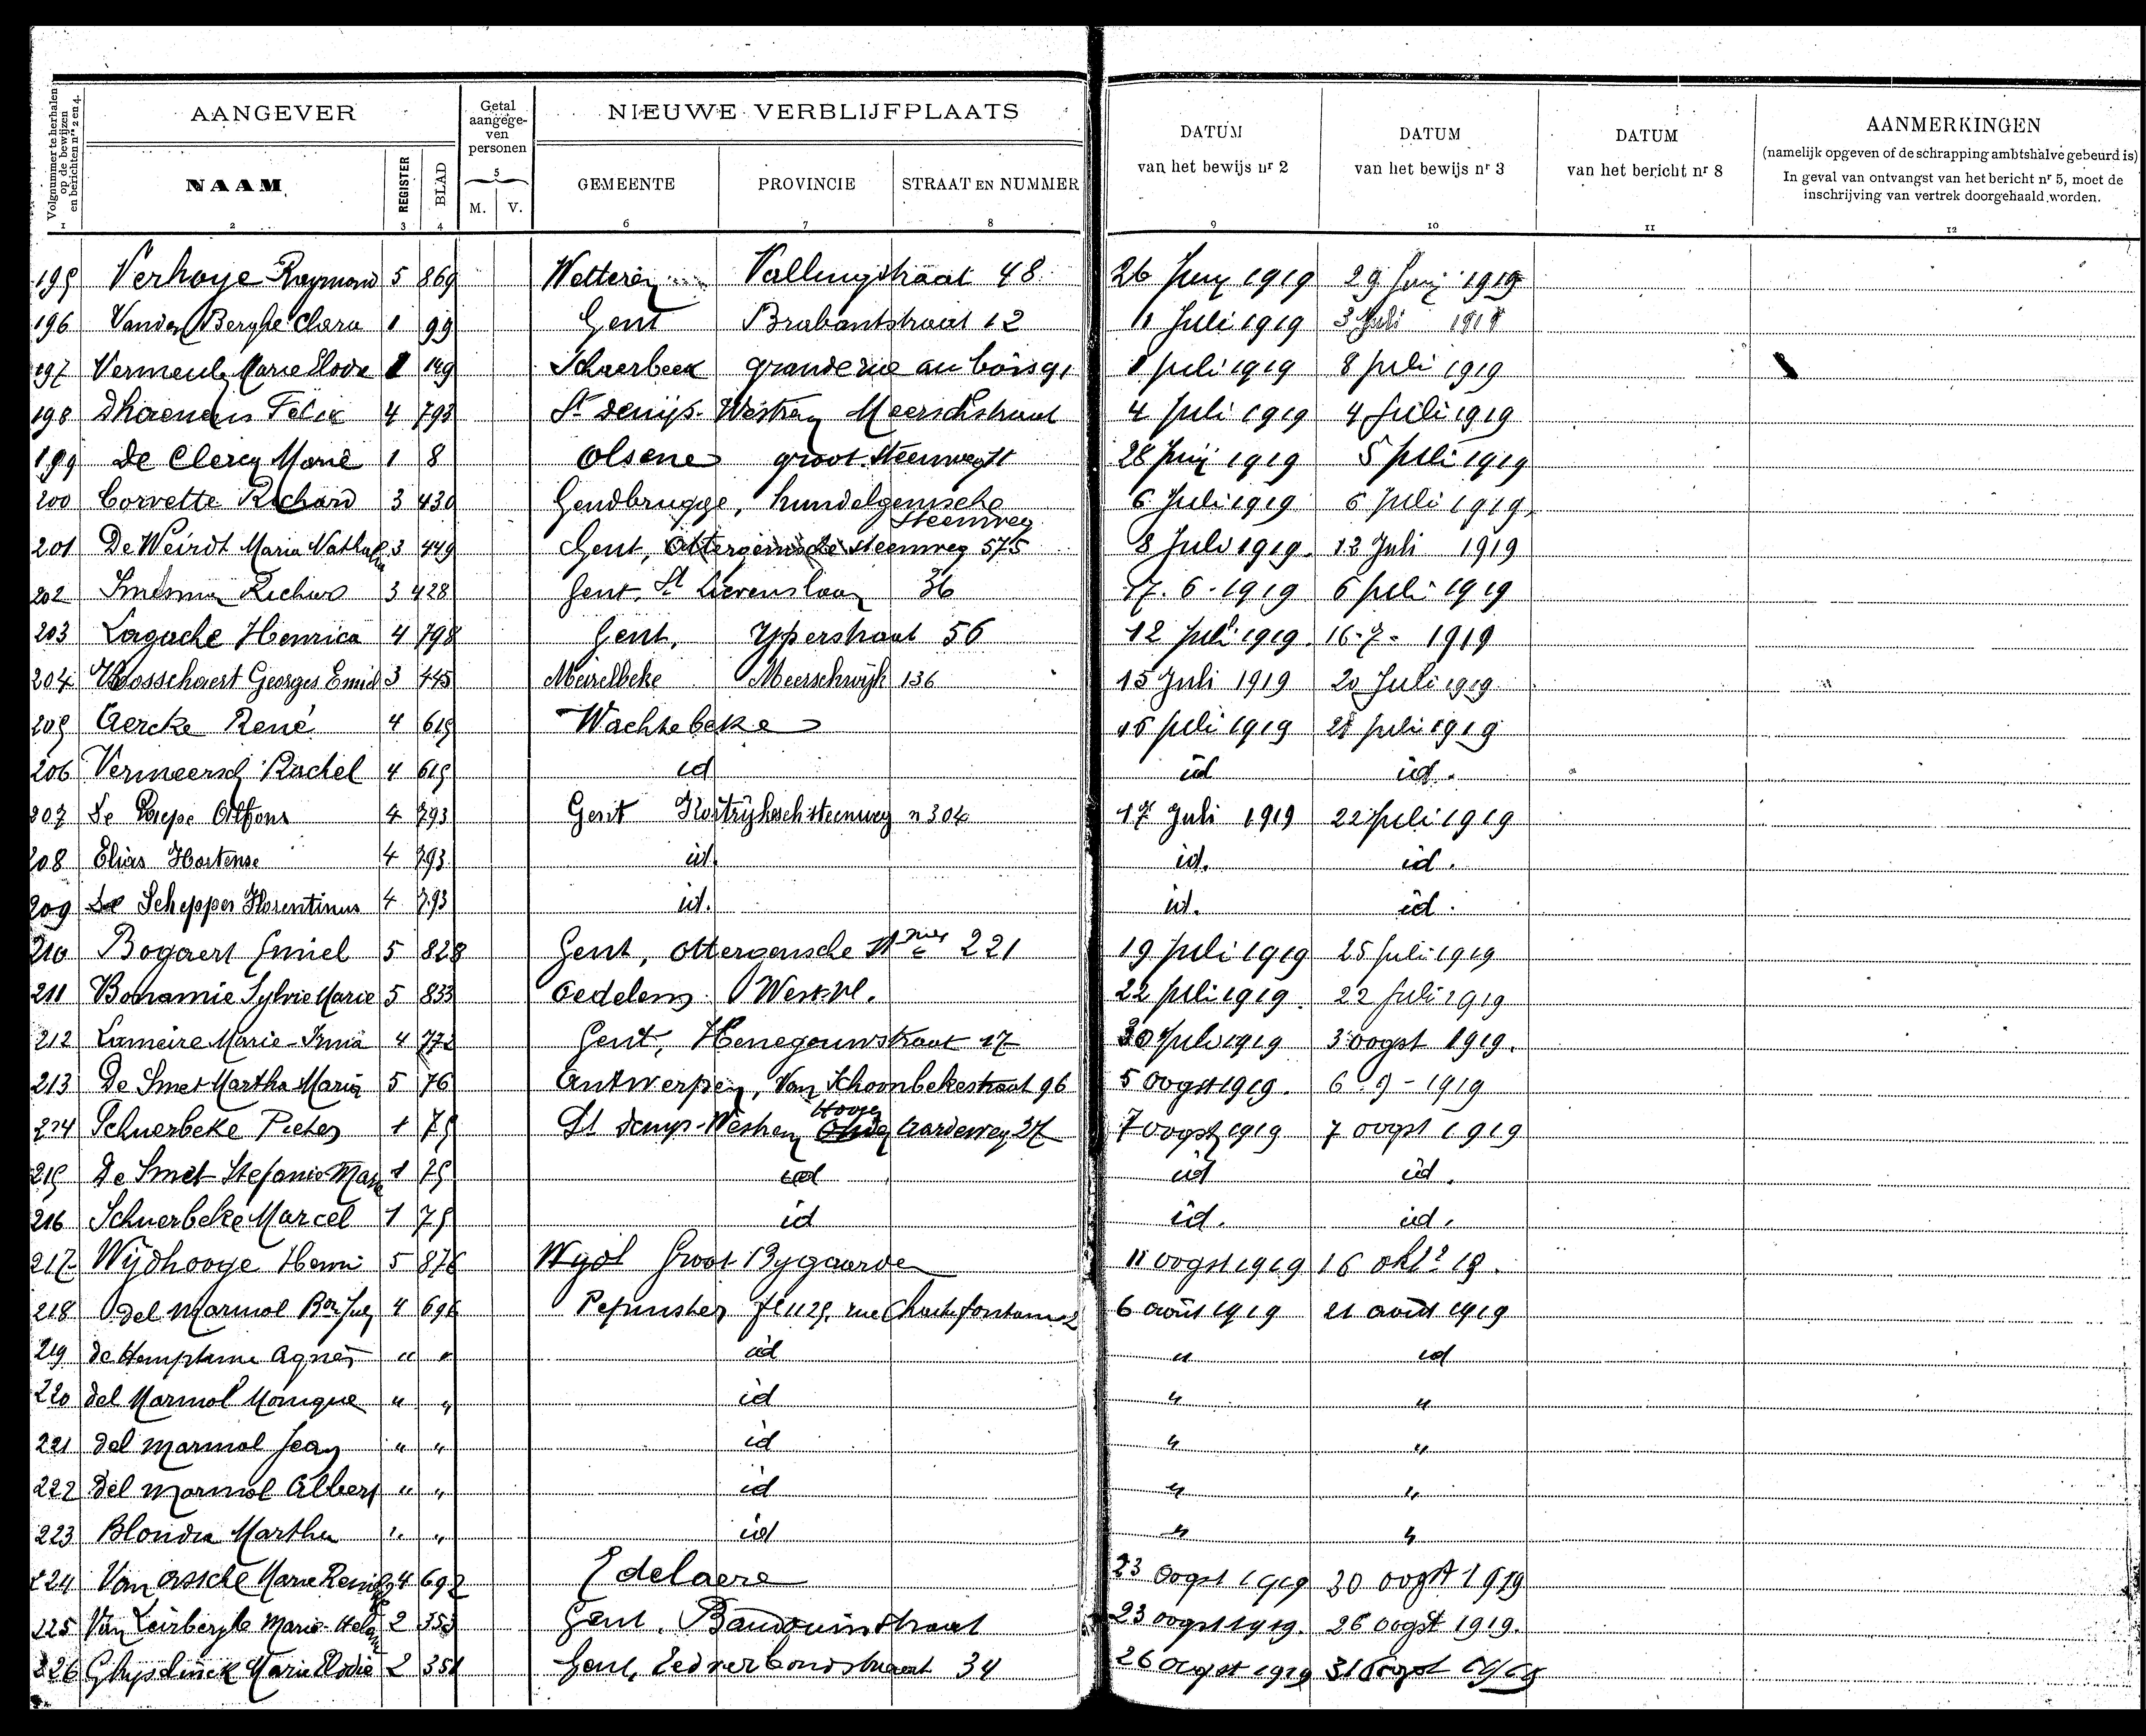 Volgnummer te herhalen op de bewijzen en berichten nrs 2 en 4.
AANGEVER
Getal aangege-ven personen
NIEUWE VERBLIJFPLAATS
DATUM van het bewijs nr 2
DATUM van het bewijs nr 3
DATUM van het bericht nr 8
AANMERKINGEN
(namelijk opgeven of de schrapping ambtshalve gebeurd is)
In geval van ontvangst van het bericht nr 5, moet de inschrijving van vertrek doorgehaald worden.
NAAM REGISTER BLAD 5 M. V. GEMEENTE PROVINCIE STRAAT EN NUMMER
1 2 3 4 6 7 8 9 10 11 12
195 Verhoye Raymond 5 869 Wetteren 48 26 Juny 1919 29 Juny 1919
196 Vanden Berghe Clara 1 99 Gent Brabantstraat 12 1 Juli 1919 3 Juli
197 Marie 149 Schaerbeek grande rue au bois 91 1 juli 1919 8 juli 1919
198 Dhaenens Felix 4 793 St Denijs-Westrem Meerschstraat 4 juli 1919 4 juli 1919
199 De Clercq Marie 1 8 Olsene groot Steenweg 28 Juni 1919 5 juli 1919
200 Corvette Richard 3 430 Gendbrugge, hundelgemsche Steenweg 6 Juli 1919 6 juli 1919
201 De Weirdt Maria Nathalia 3 449 Gent, Ottergemsche steenweg 575 8 Juli 1919. 12 Juli 1919
202 3 428 Gent, St Lievenslaan 36 17.6-1919 6 juli 1919
203 Lagache Henrica 4 798 Gent, Yperstraat 56 12 juli 1919. 16-7-1919
204 Georges Emiel 3 445 Meirelbeke Meerschwijk 136 15 Juli 1919 20 Juli 1919
205 Aercke René 4 615 Wachtebeke 15 juli 1919 21 juli 1919
206 Vermeersch Rachel 4 615 id id id.
207 De Paepe Alfons 4 793 Gent Kortrijkschsteenweg n 304 17 Juli 1919 22 juli 1919
208 Elias Hortense 4 793 id. id. id.
209 De Schepper Florentinus 4 793 id. id. id.
210 Bogaert Emiel 5 828 Gent, Ottergemsche 221 19 juli 1919 25 juli 1919
211 Bonamie Sylvie Marie 5 833 Oedelem West-vl. 22 juli 1919. 22 juli 1919
212 Lameire Marie-Irma 4 772 Gent, Henegouwstraat 17 30 juli 1919 3 oogst 1919.
213 De Smet Martha Maria 5 76 Antwerpen, Van Schoonbekestraat 96 5 oogst 1919. 6-9-1919
214 Schuerbeke Pieter 1 75 St Denijs-Westrem Hooge Aardeweg 27 7 oogst 1919 7 oogst 1919
215 De Smet Stefanie Marie 1 75 id id id.
216 Schuerbeke Marcel 1 75 id id. id.
217 Wijdhooge Henri 5 876 Groot Bygaarde 11 oogst 1919 16 okt 19.
218 del Marmol Bon 4 696 Pepinster 6 août 1919 21 août 1919
219 de Hemptinne Agnès " " id " id
220 del Marmol Monique " " id " "
221 del Marmol Jean " " id " "
222 del Marmol Albert " " id " "
223 Blondia Martha " " id " "
224 Van Assche Marie 4 692 Edelaere 23 oogst 1919 30 oogst 1919
225 Van Leirberghe Marie 2 353 Gent, Baudouinstraat 23 oogst 1919. 26 oogst 1919.
226 Ghyselinck Marie Elodie 2 351 Gent, Eedverbondstraat 34 26 oogst 1919 31 oogst 1919